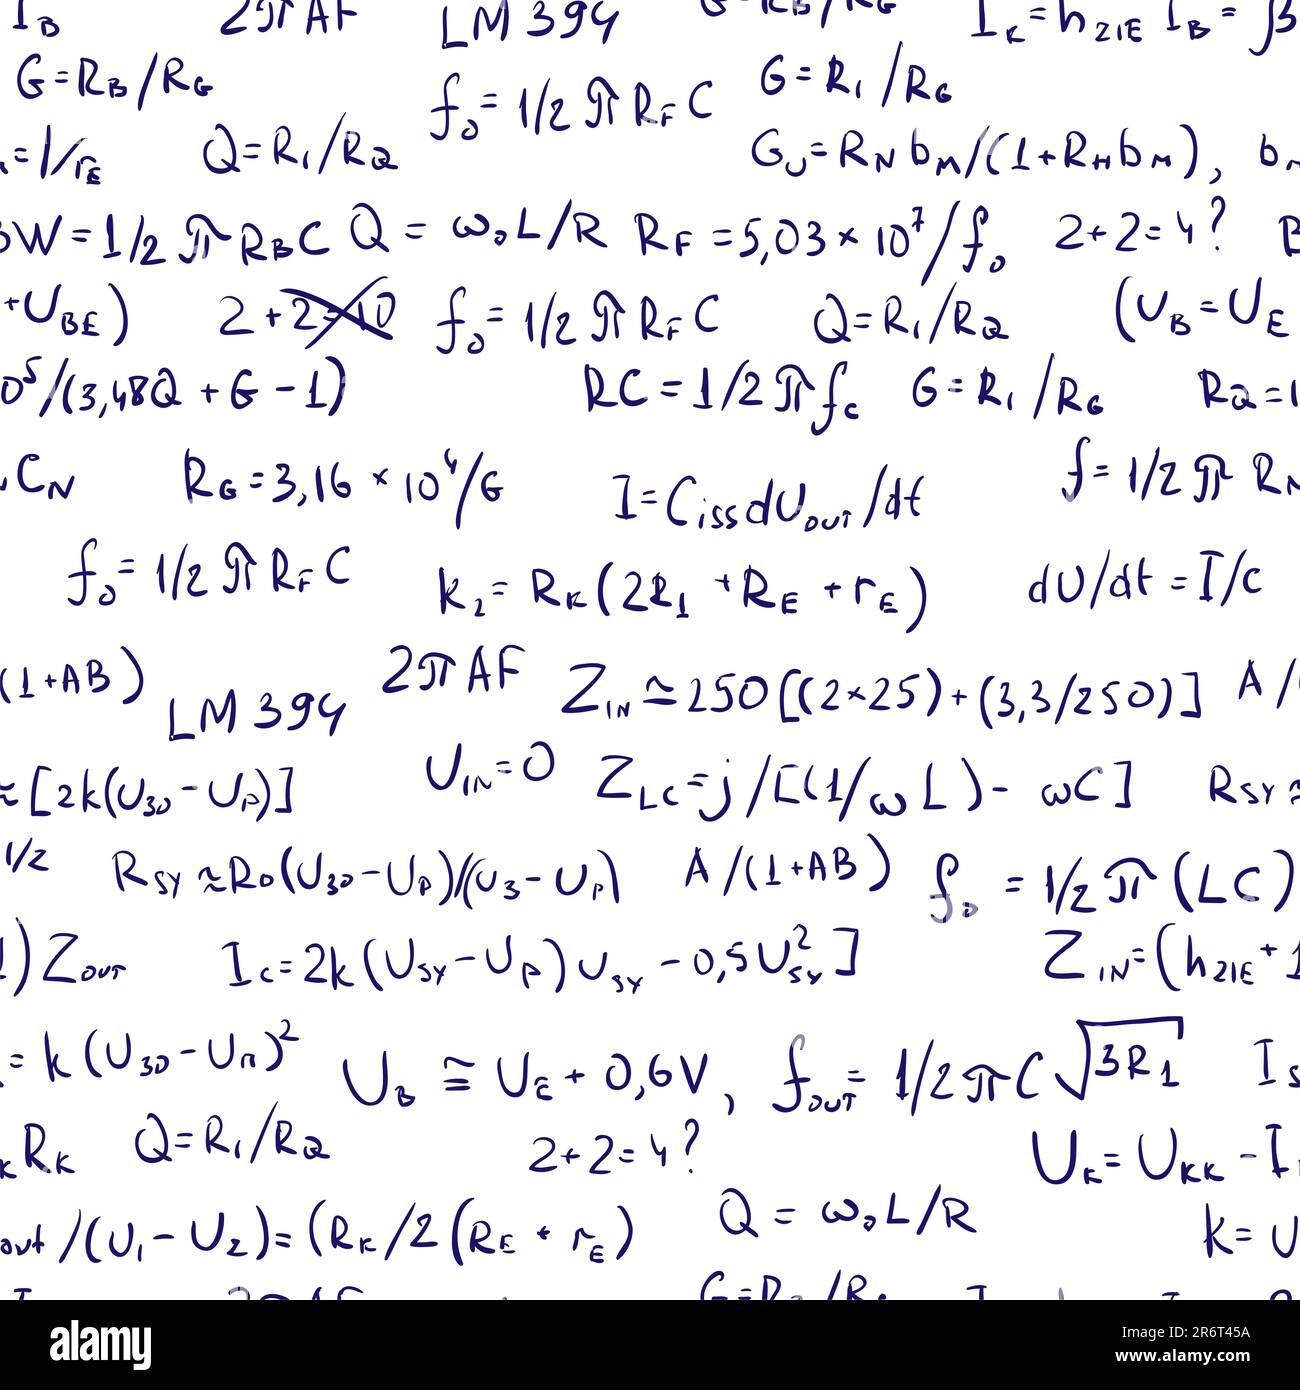 I_B 2πAF LM 394 G=R_B/R_G I_K=h_21E I_B=β
G=R_B/R_G f_0=1/2πR_F C G=R_1/R_G
=1/r_E Q=R_1/R_Q G_U=R_N b_M/(1+R_N b_M), b
BW=1/2πR_B C Q=ω_0L/R R_F=5,03×10^7/f_0 2+2=4? B
+U_BE) 2+2=10 f_0=1/2πR_F C Q=R_1/R_Q (U_B=U_E
0^5/(3,48Q+G-1) RC=1/2πf_C G=R_1/R_G R_Q=1
C_N R_G=3,16×10^4/G I=C_iss dU_OUT/dt f=1/2πR_N
f_0=1/2πR_F C k_2=R_K(2R_1+R_E+r_E) dU/dt=I/c
(1+AB) LM 394 2πAF Z_IN≃250[(2×25)+(3,3/250)] A/
≈[2k(U_30-U_P)] U_IN=0 Z_LC=j/[(1/ωL)-ωC] R_SY≈
1/2 R_SY≈R_O(U_30-U_P)/(U_3-U_P) A/(1+AB) f_0=1/2π(LC)
1)Z_OUT I_C=2k(U_SY-U_P)U_SY-0,5U_SY^2] Z_IN=(h_21E+1
=k(U_30-U_п)^2 U_B≅U_E+0,6V, f_OUT=1/2πC√3R_1 I_S
_K R_K Q=R_1/R_Q 2+2=4? U_K=U_KK-I
out/(U_1-U_2)=(R_K/2(R_E+r_E) Q=ω_0L/R k=U
alamy
Image ID: 2R6T45A
www.alamy.com